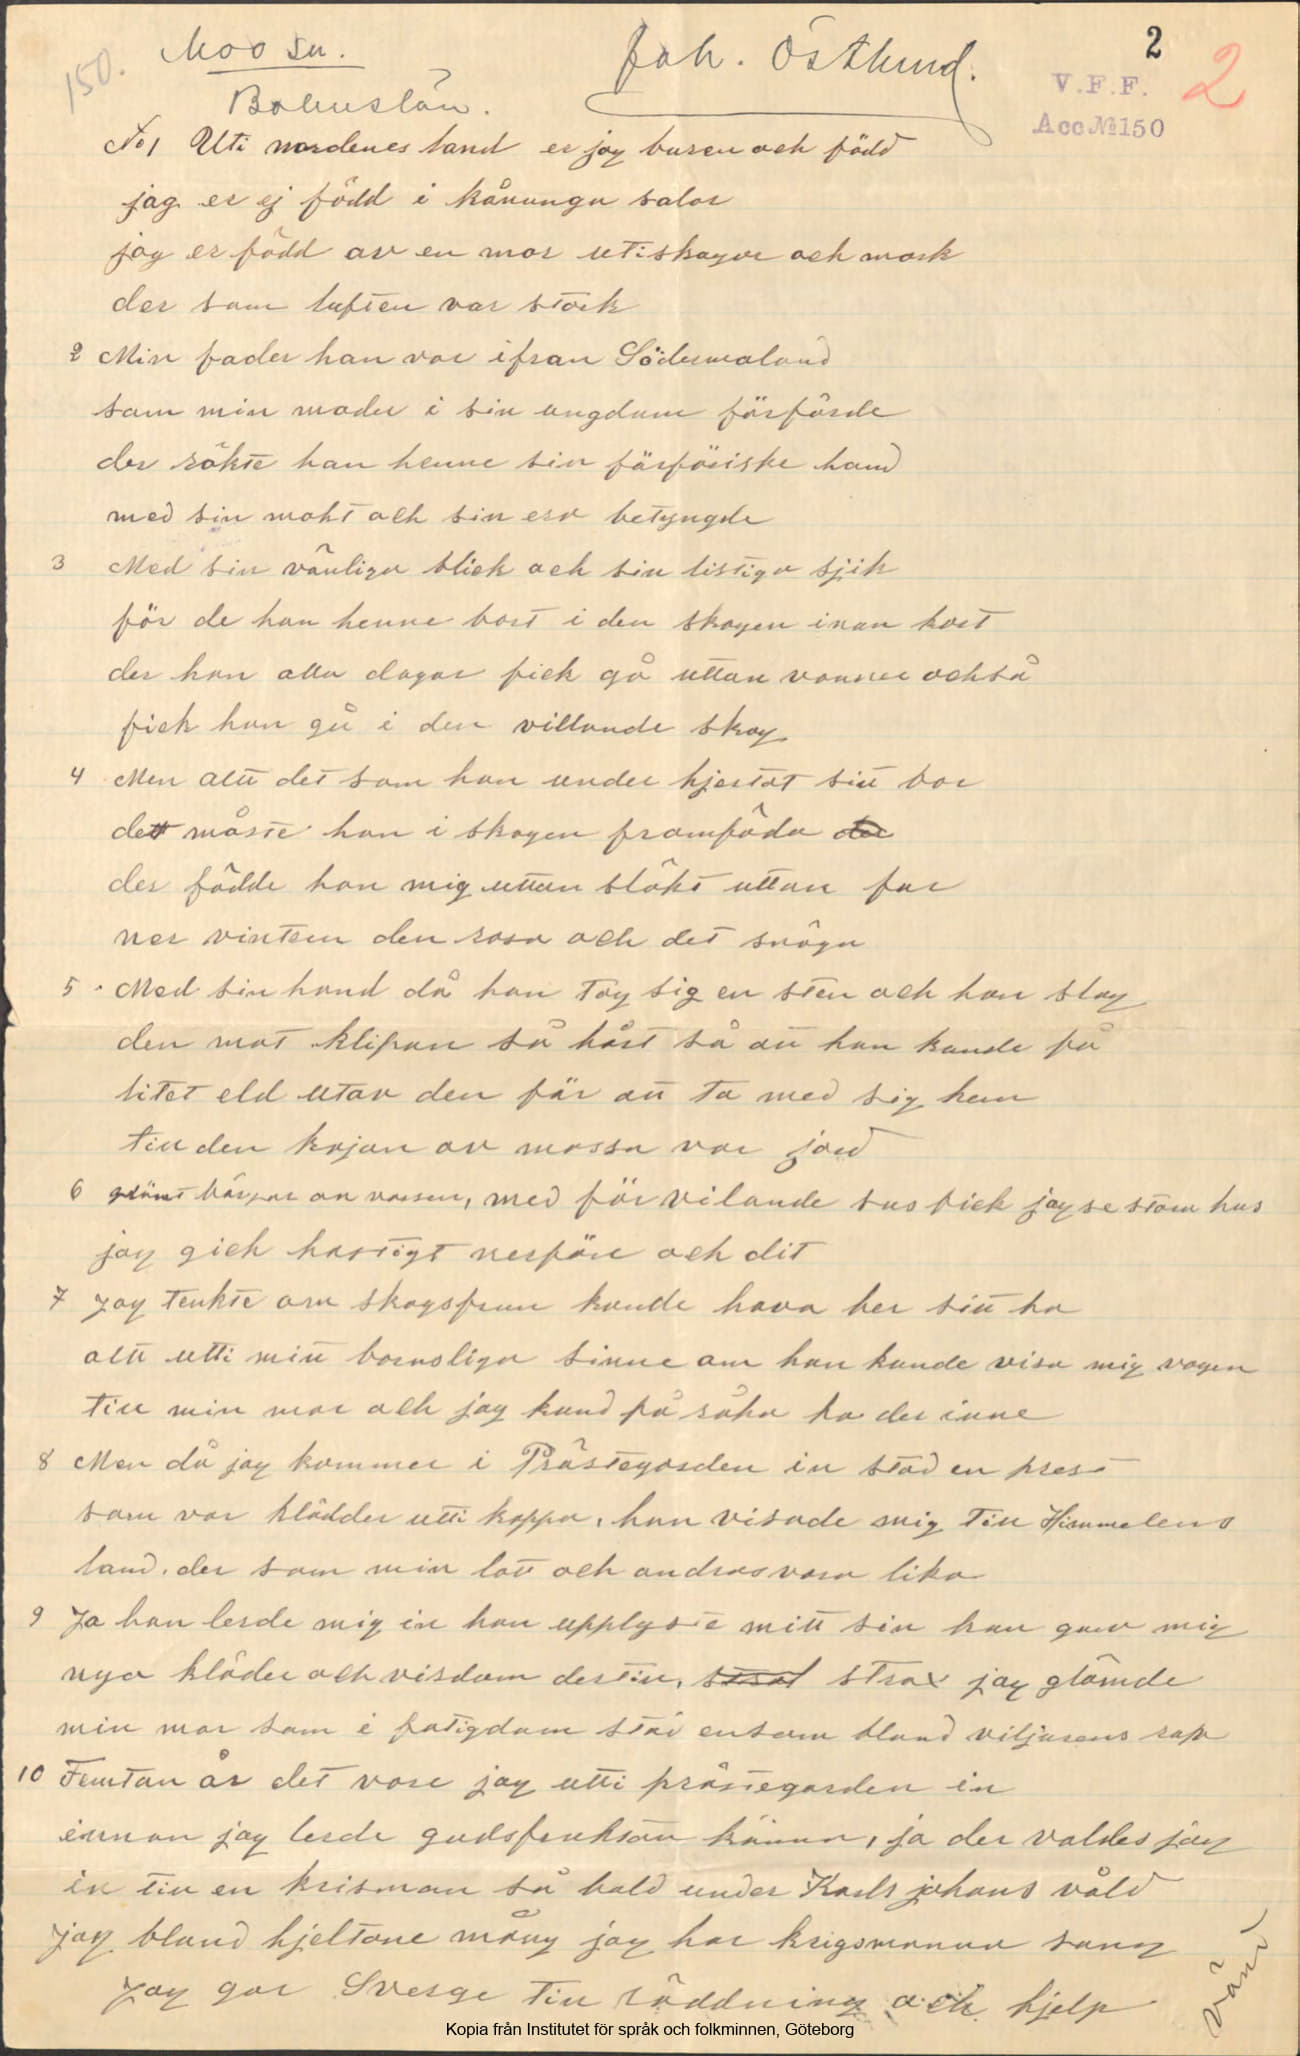 150. Moo sn. Joh. Östlund. 2
Bohuslän. V.F.F. 2
Acc№150
No 1 Uti nordenes land er jag buren och född
jag er ej född i kånunga salar
jag er född av en mor uti skogar och mark
der som luften var stark
2 Min fader han var ifran Södermaland
som min moder i sin ungdum förförde
der sökte han henne sin förföriske hand
med sin makt och sin esv betyngde
3 Med sin vänliga blick och sin listiga sjik
för de han henne bort i den skogen inan kort
der hon alla dagar fick gå uttan vänner också
fick hon gå i den villande skog
4 Men allt det som hon under hjertat sitt bar
dett måste hon i skogen framföda
der födde hon mig uttan släkt uttan far
ner vintern den rasa och det snöga
5 Med sin hand då hon tog sig en sten och hon slog
den mot klipan så hårt så att hon kunde få
litet eld utav den för att ta med sig hem
till den kojan av mossa var jord
6 med förvilande sus fick jag se stora hus
jag gick hastigt nerför och dit
7 jag tenkte om skogsfrun kunde hava her sitt bo
allt utti mitt barnsliga sinne om hon kunde visa mig vagen
till min mor och jag kund få söka ho der inne
8 Men då jag kommer i Prästegorden in stod en prest
som var klädder utti kappa, han visade mig till Himmelens
land. der som min lott och andras vara lika
9 Ja han lerde mig in han upplyste mitt sin han gav mig
nya kläder och visdom dertill, strax jag glömde
min mor som i fatigdom står ensam bland viljarens rop
10 Femtan år det vore jag utti prästegarden in
innan jag lerde gudsfruktan känna, ja der valdes jag
in till en krisman så bald under Karls johans våld
jag bland hjeltane mång jag har krigsmanna sang
Jag gar Sverge till räddning och hjelp
vänd
Kopia från Institutet för språk och folkminnen, Göteborg